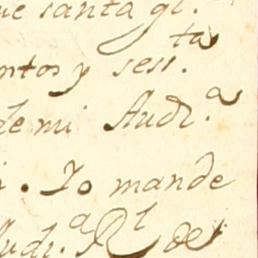 ue santa gl.
ntos y sess.ta
de mi Audi.a
i. Io mande
Audi.a Rl de